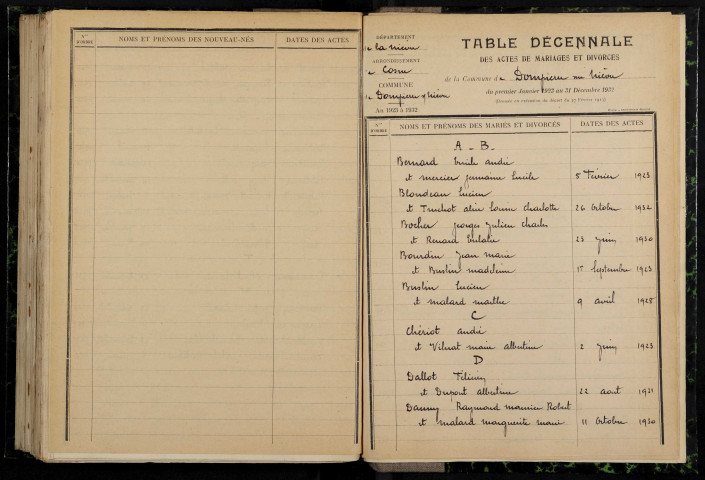 Nos D'ORDRE
NOMS ET PRÉNOMS DES NOUVEAU-NÉS
DATES DES ACTES
DÉPARTEMENT
de la Nièvre
ARRONDISSEMENT
de Cosne
COMMUNE
de Dompierre s/ Nièvre
An 1923 à 1932
TABLE DÉCENNALE
DES ACTES DE MARIAGES ET DIVORCES
de la Commune de Dompierre sur Nièvre
du premier Janvier 1923 au 31 Décembre 1932
Nos D'ORDRE
NOMS ET PRÉNOMS DES MARIÉS ET DIVORCÉS
DATES DES ACTES
A - B.
Bernard Emile andré
et mercier germaine Lucile 5 Février 1923
Blondeau Lucien
et Truchot aline Louise charlotte 26 Octobre 1932
Bocher georges Julien charles
et Renard Eulalie 23 juin 1930
Bourdin Jean marie
et Bustin madeleine 15 Septembre 1923
Bustin Lucien
et malard marthe 9 avril 1928
C
Chériot andré
et Vilnat marie albertine 2 juin 1923
D
Dallot Félicien
et Dupont albertine 22 aout 1931
Dauny Raymond maurice Robert
et malard marguerite marie 11 Octobre 1930